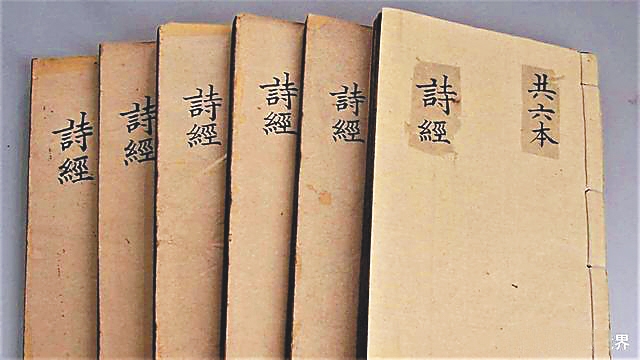 詩經
詩經
詩經
詩經
詩經
詩經
共六本
界